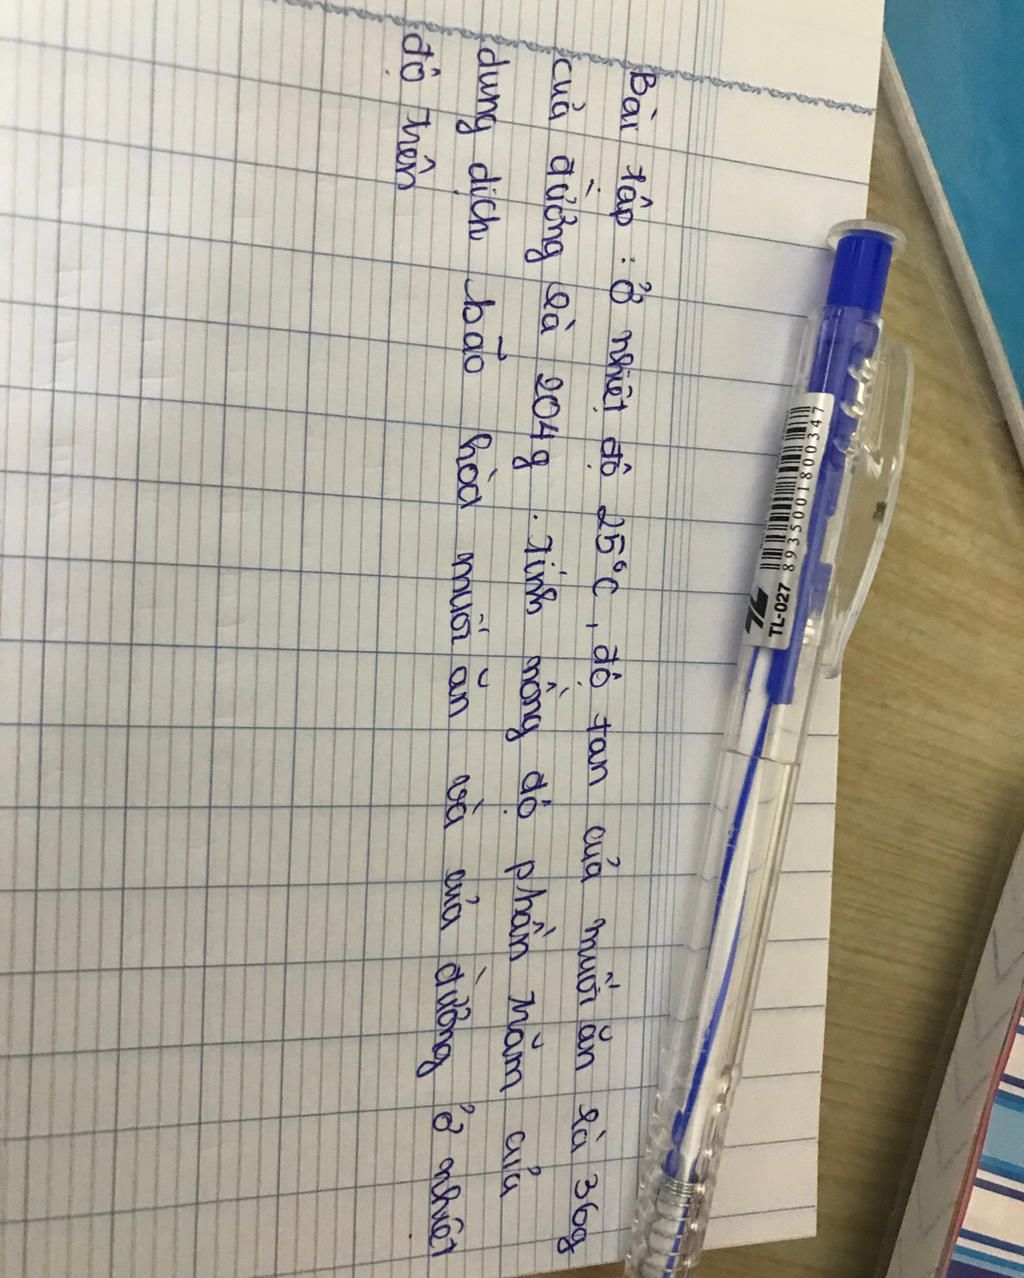 Bài tập : Ở nhiệt độ 25°C, độ tan của muối ăn là 36g
của đường là 204g. tính nồng độ phần trăm của
dung dịch bão hòa muối ăn và của đường ở nhiệt
độ trên
8935001800347
TL-027
TL